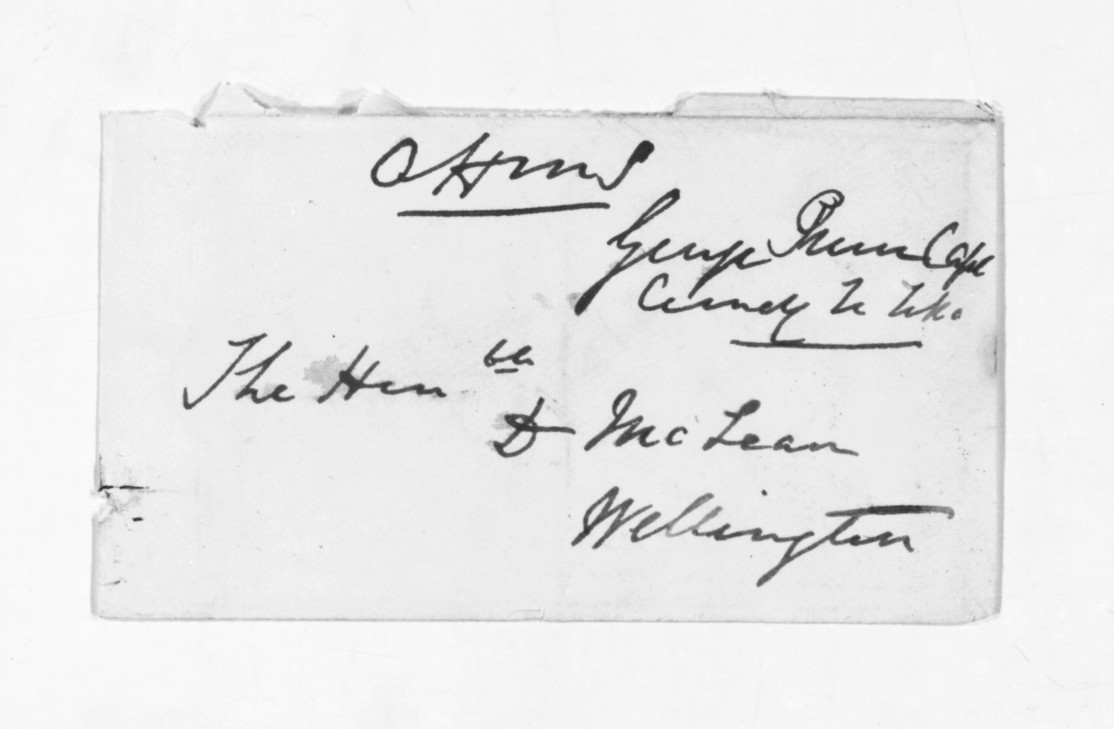 OHMS
George Preece Capt
The Hon ble
D McLean
Wellington